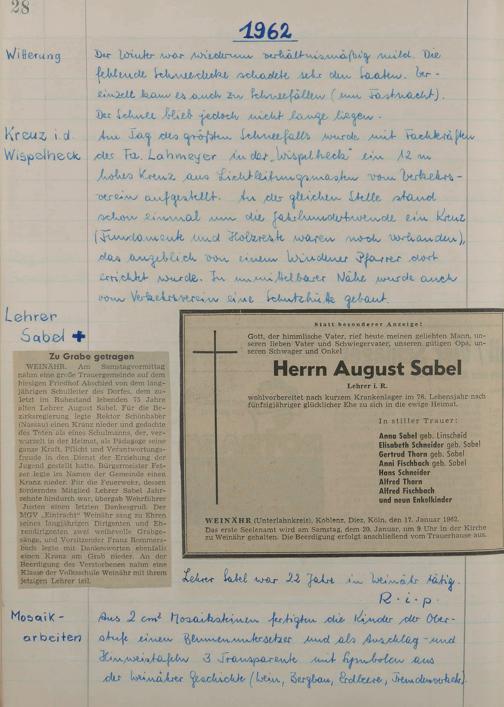 28
1962
Witterung
Der Winter war wiederum verhältnismäßig mild. Die
fehlende Schneedecke schadete sehr den Saaten. Ver-
einzelt kam es auch zu Schneefällen (um Fastnacht).
Der Schnee blieb jedoch nicht lange liegen.
Kreuz i.d.
Wispelheck
Am Tag des größten Schneefalls wurde mit Fachkräften
der Fa. Lahmeyer in der „Wispelheck" ein 12 m
hohes Kreuz aus Lichtleitungsmasten vom Verkehrs-
verein aufgestellt. An der gleichen Stelle stand
schon einmal um die Jahrhundertwende ein Kreuz
(Fundamente und Holzreste waren noch vorhanden),
das angeblich von einem Windener Pfarrer dort
errichtet wurde. In unmittelbarer Nähe wurde auch
vom Verkehrsverein eine Schutzhütte gebaut.
Lehrer
Sabel +
Zu Grabe getragen
WEINÄHR. Am Samstagvormittag
nahm eine große Trauergemeinde auf dem
hiesigen Friedhof Abschied von dem lang-
jährigen Schulleiter des Dorfes, dem zu-
letzt im Ruhestand lebenden 75 Jahre
alten Lehrer August Sabel. Für die Be-
zirksregierung legte Rektor Schönhaber
(Nassau) einen Kranz nieder und gedachte
des Toten als eines Schulmanns, der, ver-
wurzelt in der Heimat, als Pädagoge seine
ganze Kraft, Pflicht und Verantwortungs-
freude in den Dienst der Erziehung der
Jugend gestellt hatte. Bürgermeister
legte im Namen der Gemeinde einen
Kranz nieder. Für die Feuerwehr, dessen
förderndes Mitglied Lehrer Sabel Jahr-
zehnte hindurch war, übergab Wehrführer
einen letzten Dankesgruß. Der
MGV „Eintracht" Weinähr sang zu Ehren
seines langjährigen Dirigenten und Eh-
rendirigenten zwei weihevolle Grabge-
sänge, und Vorsitzender Franz
legte mit Dankesworten ebenfalls
einen Kranz am Grab nieder. An der
Beerdigung des Verstorbenen nahm eine
Klasse der Volksschule Weinähr mit ihrem
jetzigen Lehrer teil.
Statt besonderer Anzeige!
Gott, der himmlische Vater, rief heute meinen geliebten Mann, un-
seren lieben Vater und Schwiegervater, unseren gütigen Opa, un-
seren Schwager und Onkel
Herrn August Sabel
Lehrer i. R.
wohlvorbereitet nach kurzem Krankenlager im 76. Lebensjahr nach
fünfzigjähriger glücklicher Ehe zu sich in die ewige Heimat.
In stiller Trauer:
Anna Sabel geb. Linscheid
Elisabeth Schneider geb. Sabel
Gertrud Thorn geb. Sabel
Anni Fischbach geb. Sabel
Hans Schneider
Alfred Thorn
Alfred Fischbach
und neun Enkelkinder
WEINÄHR (Unterlahnkreis), Koblenz, Diez, Köln, den 17. Januar 1962.
Das erste Seelenamt wird am Samstag, dem 20. Januar, um 9 Uhr in der Kirche
zu Weinähr gehalten. Die Beerdigung erfolgt anschließend vom Trauerhause aus.
Lehrer Sabel war 22 Jahre in Weinähr tätig.
R.i.p.
Mosaik-
arbeiten
Aus 2 cm² Mosaiksteinen fertigten die Kinder der Ober-
stufe einen Blumenuntersetzer und als Anschlag- und
Hinweistafeln 3 Transparente mit Symbolen aus
der Weinährer Geschichte (Wein, Bergbau, Erdbeere, Fremdenverkehr).